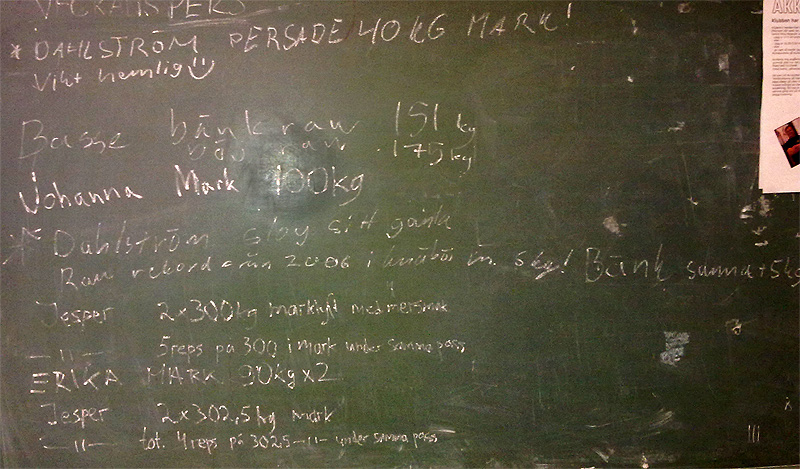 VECKANS PERS
* DAHLSTRÖM PERSADE 40 KG MARK!
Vikt hemlig
Basse bänk raw 151 kg
böj raw 175 kg
Johanna Mark 100kg
* Dahlström slog sitt gamla
Raw rekord från 2006 i knäböj m. 5kg! Bänk samma + 5kg
Jesper 2x300kg marklyft med mersmak
— 11 — 5 reps på 300 i mark under samma pass
ERIKA MARK 90kg x2
Jesper 2x302,5kg mark
— 11 — tot. 4 reps på 302,5 — 11 — under samma pass
Klubben har